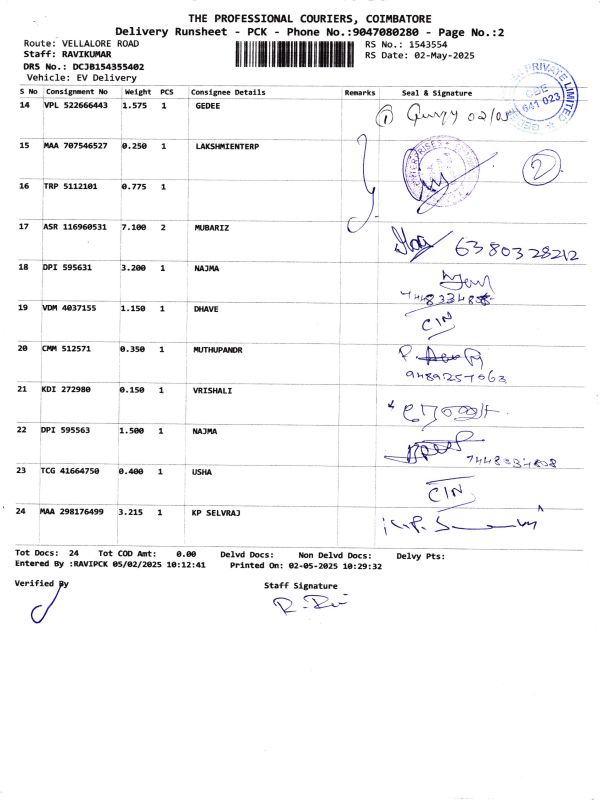 THE PROFESSIONAL COURIERS, COIMBATORE
Delivery Runsheet - PCK - Phone No.:9047080280 - Page No.:2
Route: VELLALORE ROAD
RS No.: 1543554
Staff: RAVIKUMAR
RS Date: 02-May-2025
DRS No.: DCJB154355402
Vehicle: EV Delivery
S No Consignment No Weight PCS Consignee Details Remarks Seal & Signature
14 VPL 522666443 1.575 1 GEDEE
1
PRIVATE LIMITED
CBE
641 023
15 MAA 707546527 0.250 1 LAKSHMIENTERP
ENTERPRISES
2
16 TRP 5112101 0.775 1
17 ASR 116960531 7.100 2 MUBARIZ
6380328212
18 DPI 595631 3.200 1 NAJMA
19 VDM 4037155 1.150 1 DHAVE
CIN
20 CMM 512571 0.350 1 MUTHUPANDR
9489257063
21 KDI 272980 0.150 1 VRISHALI
22 DPI 595563 1.500 1 NAJMA
23 TCG 41664750 0.400 1 USHA
CIN
24 MAA 298176499 3.215 1 KP SELVRAJ
Tot Docs: 24 Tot COD Amt: 0.00 Delvd Docs: Non Delvd Docs: Delvy Pts:
Entered By :RAVIPCK 05/02/2025 10:12:41 Printed On: 02-05-2025 10:29:32
Verified By
Staff Signature